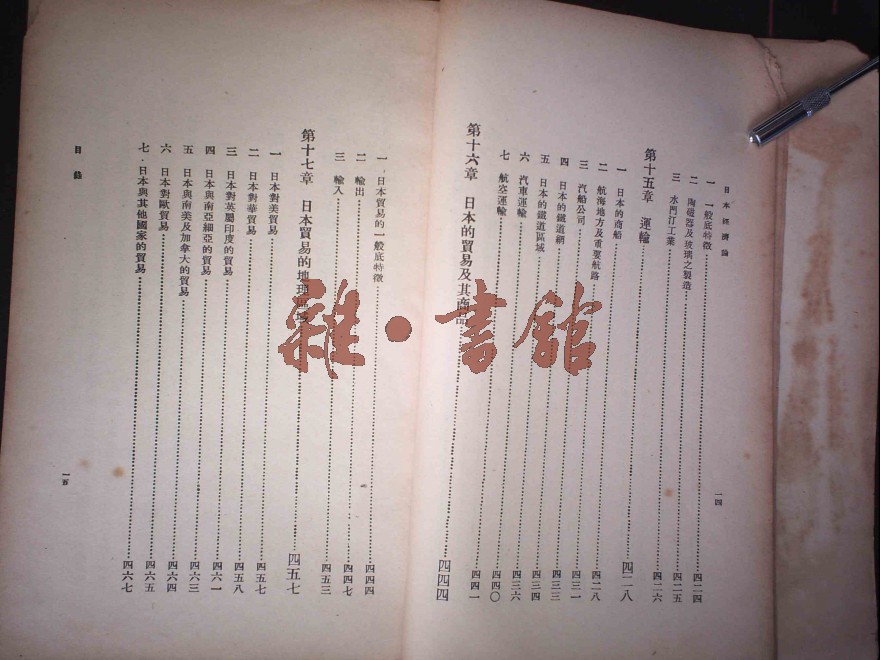 日本經濟論
一 一般底特徵 四二四
二 陶磁器及玻璃之製造 四二五
三 水門汀工業 四二六
第十五章 運輸 四二八
一 日本的商船 四二八
二 航海地方及重要航路 四三一
三 汽船公司 四三三
四 日本的鐵道網 四三四
五 日本的鐵道區域 四三六
六 汽車運輸 四四〇
七 航空運輸 四四一
第十六章 日本的貿易及其商品 四四四
一四
一 日本貿易的一般底特徵 四四四
二 輸出 四四七
三 輸入 四五三
第十七章 日本貿易的地理區域 四五七
一 日本對美貿易 四五七
二 日本對華貿易 四五八
三 日本對英屬印度的貿易 四六一
四 日本與南亞細亞的貿易 四六三
五 日本與南美及加拿大的貿易 四六四
六 日本對歐貿易 四六五
七 日本與其他國家的貿易 四六七
目錄
一五
雜·書館